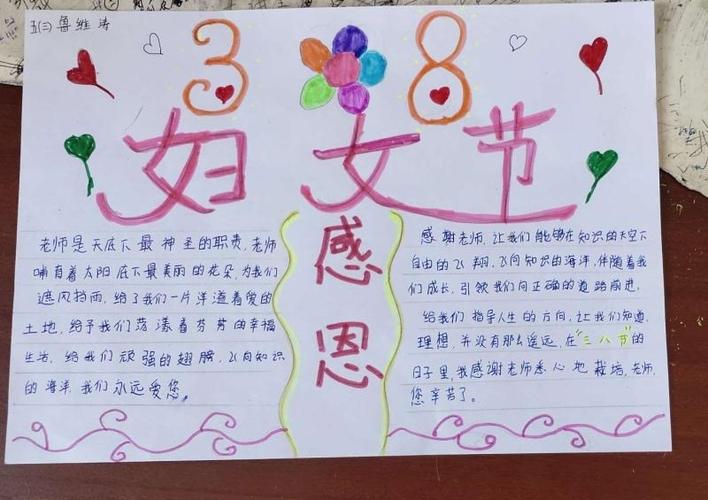 五(三)鲁维涛
3 8
妇女节
老师是天底下最神圣的职责,老师
哺育着太阳底下最美丽的花朵,为我们
遮风挡雨,给了我们一片洋溢着爱的
土地,给予我们荡漾着芬芳的幸福
生活,给我们顽强的翅膀,飞向知识
的海洋,我们永远爱您。
感
恩
感谢老师,让我们能够在知识的天空下
自由的飞翔,飞向知识的海洋,伴随着我
们成长,引领我们向正确的道路前进。
给我们指导人生的方向,让我们知道,
理想,并没有那么遥远,在"三八节"的
日子里,我感谢老师悉心地栽培,老师,
您辛苦了。